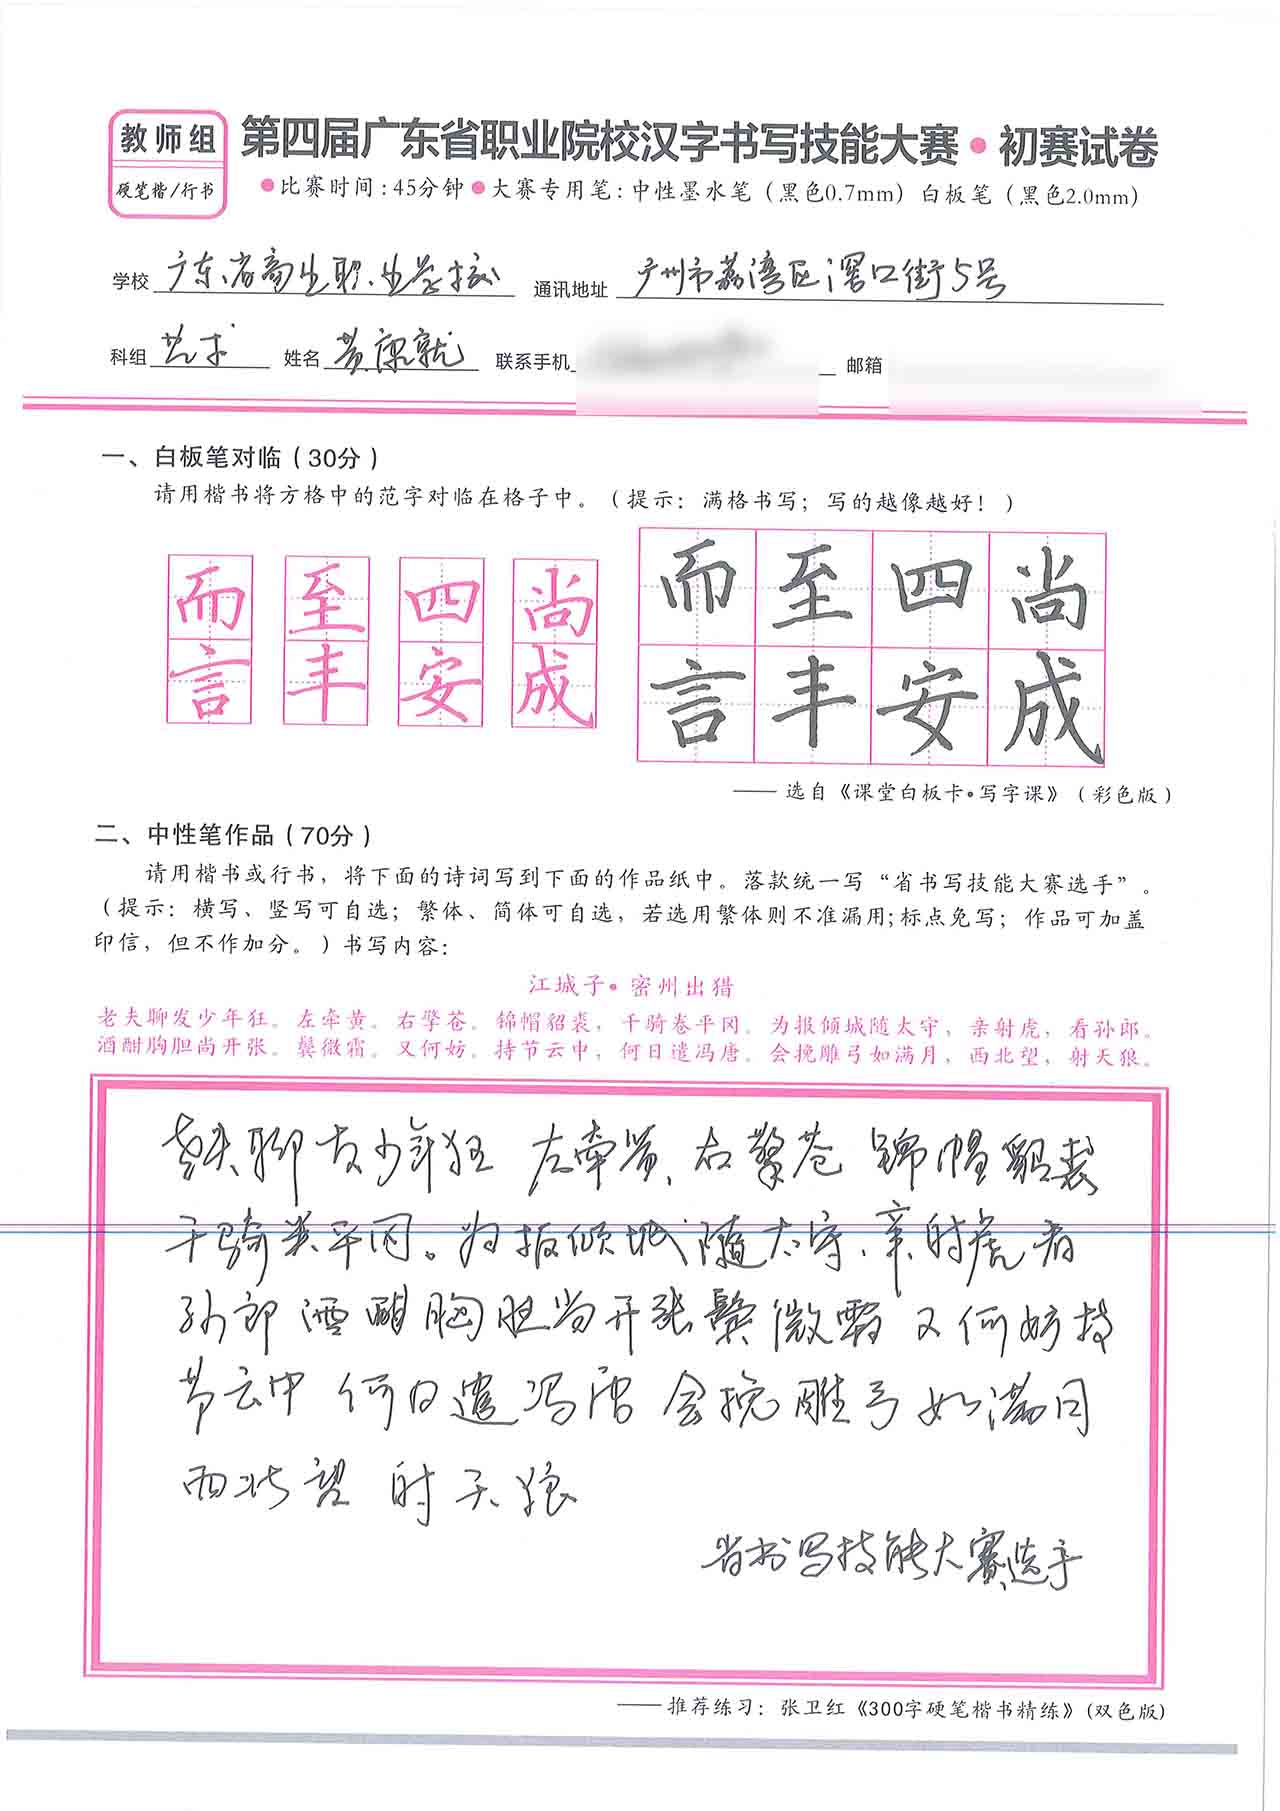 教师组
硬笔楷/行书
第四届广东省职业院校汉字书写技能大赛•初赛试卷
●比赛时间:45分钟●大赛专用笔:中性墨水笔(黑色0.7mm)白板笔(黑色2.0mm)
学校 广东省商业职业学校 通讯地址 广州市荔湾区滘口街5号
科组 艺术 姓名 黄康就 联系手机 邮箱
一、白板笔对临(30分)
请用楷书将方格中的范字对临在格子中。(提示:满格书写;写的越像越好!)
而 至 四 尚 而 至 四 尚
言 丰 安 成 言 丰 安 成
——选自《课堂白板卡•写字课》(彩色版)
二、中性笔作品(70分)
请用楷书或行书,将下面的诗词写到下面的作品纸中。落款统一写“省书写技能大赛选手”。
(提示:横写、竖写可自选;繁体、简体可自选,若选用繁体则不准漏用;标点免写;作品可加盖
印信,但不作加分。)书写内容:
江城子•密州出猎
老夫聊发少年狂。左牵黄。右擎苍。锦帽貂裘,千骑卷平冈。为报倾城随太守,亲射虎,看孙郎。
酒酣胸胆尚开张。鬓微霜。又何妨。持节云中,何日遣冯唐。会挽雕弓如满月,西北望,射天狼。
老夫聊发少年狂 左牵黄、右擎苍 锦帽貂裘
千骑卷平冈。为报倾城随太守、亲射虎 看
孙郎 酒酣胸胆尚开张 鬓微霜 又何妨 持
节云中 何日遣冯唐 会挽雕弓如满月
西北望 射天狼
省书写技能大赛选手
——推荐练习:张卫红《300字硬笔楷书精练》(双色版)